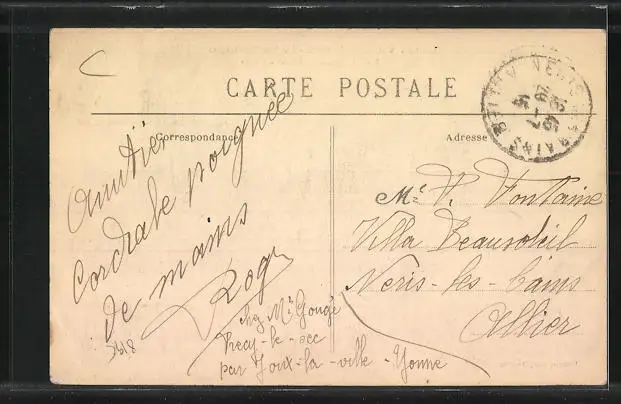 CARTE POSTALE
Correspondance
Adresse
NERIS
ALLIER
12 45
26 - 7
Amitiés
Cordiale poignée
de mains
Roger
chez Mr Gouge
Precy-le-sec
par Joux-la-ville - Yonne
Mr. Fontaine
Villa Beausoleil
Neris-les-bains
Allier